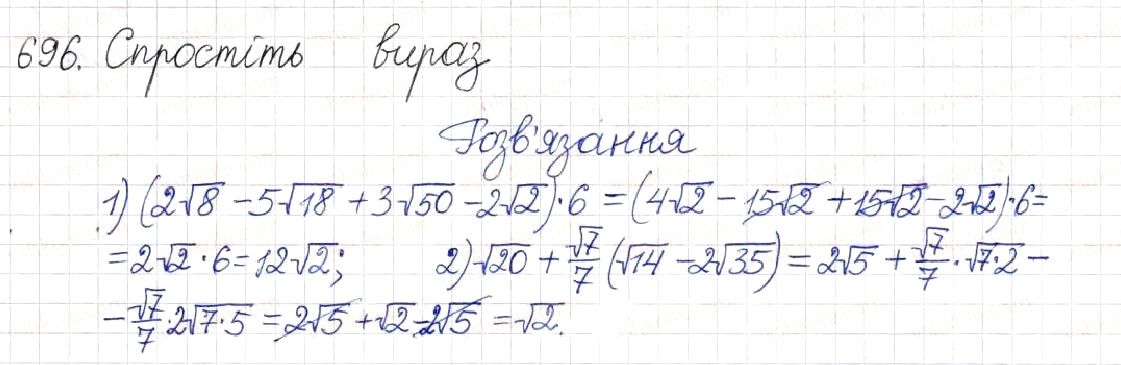 696. Спростіть вираз
Розв'язання
1) (2√8 - 5√18 + 3√50 - 2√2)·6 = (4√2 - 15√2 + 15√2 - 2√2)·6 =
= 2√2 · 6 = 12√2; 2) √20 + √7/7 (√14 - 2√35) = 2√5 + √7/7 · √7·2 -
- √7/7 · 2√7·5 = 2√5 + √2 - 2√5 = √2.